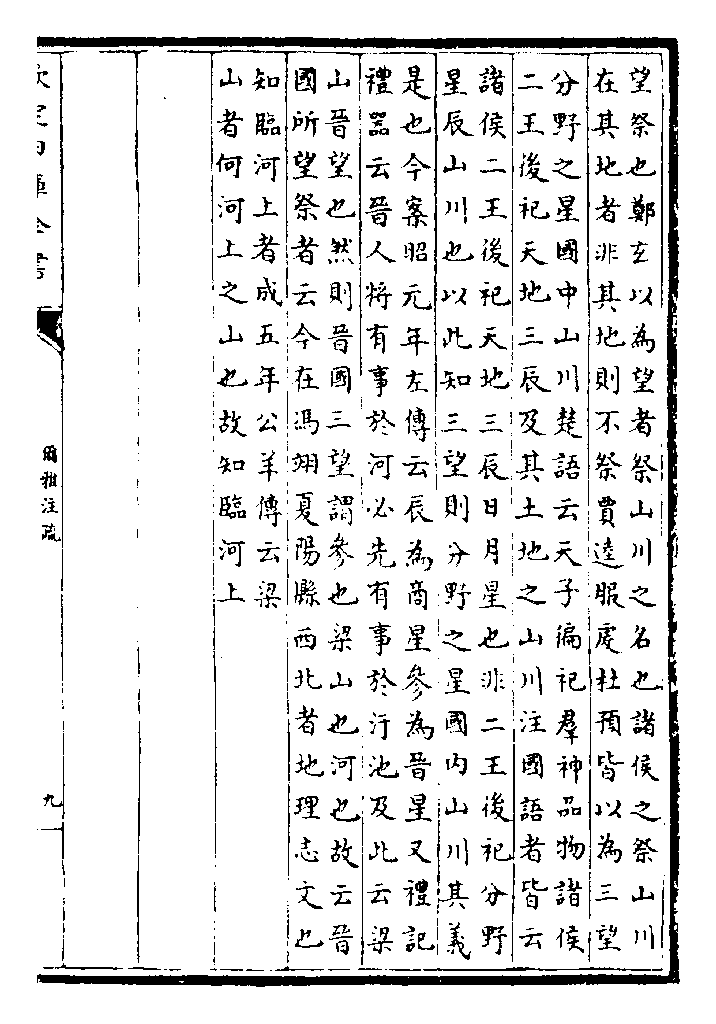 望祭也鄭玄以為望者祭山川之名也諸侯之祭山川
在其地者非其地則不祭賈逵服虔杜預皆以為三望
分野之星國中山川楚語云天子徧祀羣神品物諸侯
二王後祀天地三辰及其土地之山川注國語者皆云
諸侯二王後祀天地三辰日月星也非二王後祀分野
星辰山川也以此知三望則分野之星國内山川其義
是也今案昭元年左傳云辰為商星參為晉星又禮記
禮器云晉人將有事於河必先有事於汙池及此云梁
山晉望也然則晉國三望謂參也梁山也河也故云晉
國所望祭者云今在馮翊夏陽縣西北者地理志文也
知臨河上者成五年公羊傳云梁
山者何河上之山也故知臨河上
欽定四庫全書
爾雅注疏
九